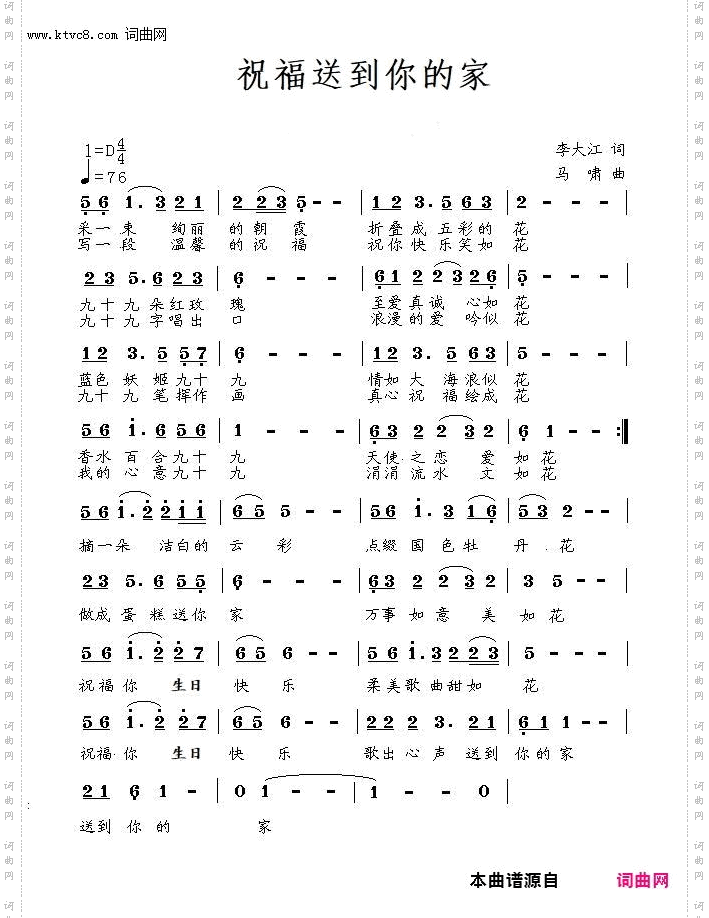 www.ktvc8.com 词曲网
祝福送到你的家
1=D4/4
♩=76
李大江 词
马 啸 曲
5 6 1. 3 2 1 | 2 2 3 5 - - | 1 2 3. 5 6 3 | 2 - - - |
采一束 绚丽 的朝霞 折叠成五彩的 花
写一段 温馨 的祝福 祝你快乐笑如 花
2 3 5. 6 2 3 | 6 - - - | 6 1 2 2 3 2 6 | 5 - - - |
九十九朵红玫 瑰 至爱真诚 心如 花
九十九字唱出 口 浪漫的爱 吟似 花
1 2 3. 5 5 7 | 6 - - - | 1 2 3. 5 6 3 | 5 - - - |
蓝色妖姬九十 九 情如大海浪似 花
九十九笔挥作 画 真心祝福绘成 花
5 6 i. 6 5 6 | 1 - - - | 6 3 2 2 3 2 | 6 1 - - :|
香水百合九十 九 天使之恋 爱 如花
我的心意九十 九 涓涓流水 文 如花
5 6 i. 2 2 i i | 6 5 5 - - | 5 6 i. 3 1 6 | 5 3 2 - - |
摘一朵 洁白的 云 彩 点缀国色牡 丹 花
2 3 5. 6 5 5 | 6 - - - | 6 3 2 2 3 2 | 6 1 - - |
做成蛋糕送你 家 万事如意 美 如花
5 6 i. 2 2 7 | 6 5 6 - - | 5 6 i. 3 2 2 3 | 5 - - - |
祝福你 生日 快 乐 柔美歌曲甜如 花
5 6 i. 2 2 7 | 6 5 6 - - | 2 2 2 3. 2 1 | 6 1 1 - - |
祝福你 生日 快 乐 歌出心声送到 你的家
2 1 6 1 - | 0 1 - - | 1 - - 0 |
送到 你的 家
本曲谱源自 词曲网